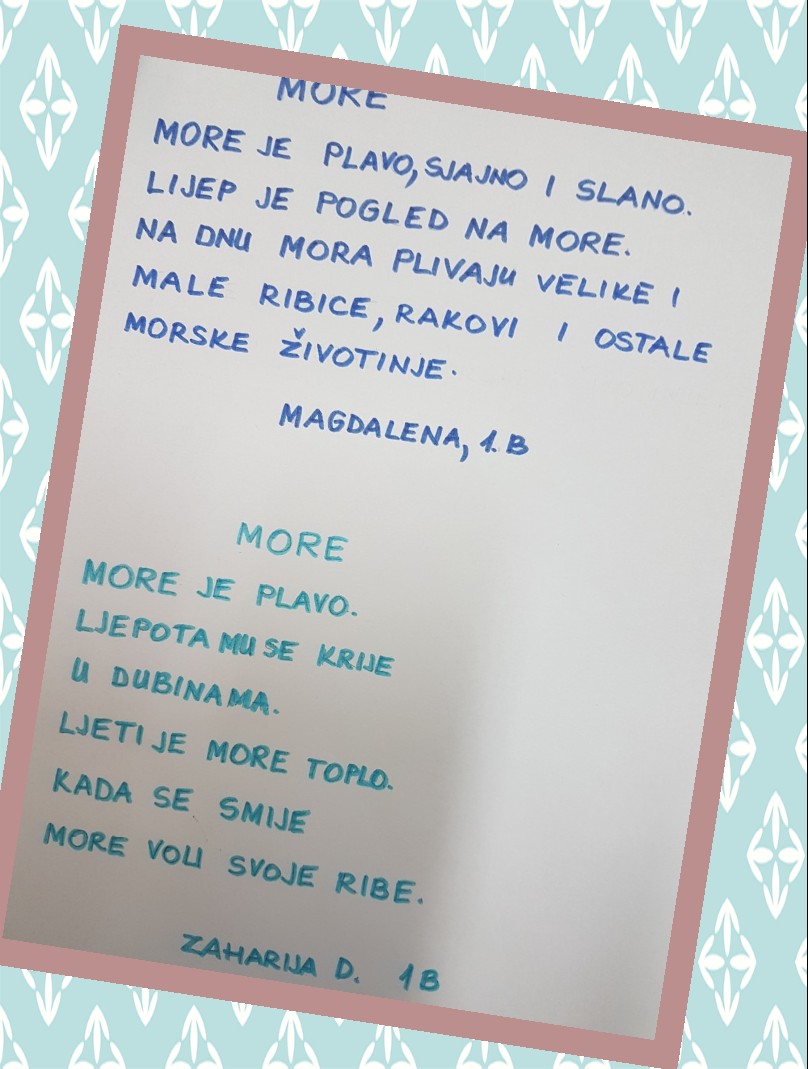 MORE
MORE JE PLAVO, SJAJNO I SLANO.
LIJEP JE POGLED NA MORE.
NA DNU MORA PLIVAJU VELIKE I
MALE RIBICE, RAKOVI I OSTALE
MORSKE ŽIVOTINJE.
MAGDALENA, 1. B
MORE
MORE JE PLAVO.
LJEPOTA MU SE KRIJE
U DUBINAMA.
LJETI JE MORE TOPLO.
KADA SE SMIJE
MORE VOLI SVOJE RIBE.
ZAHARIJA D. 1B